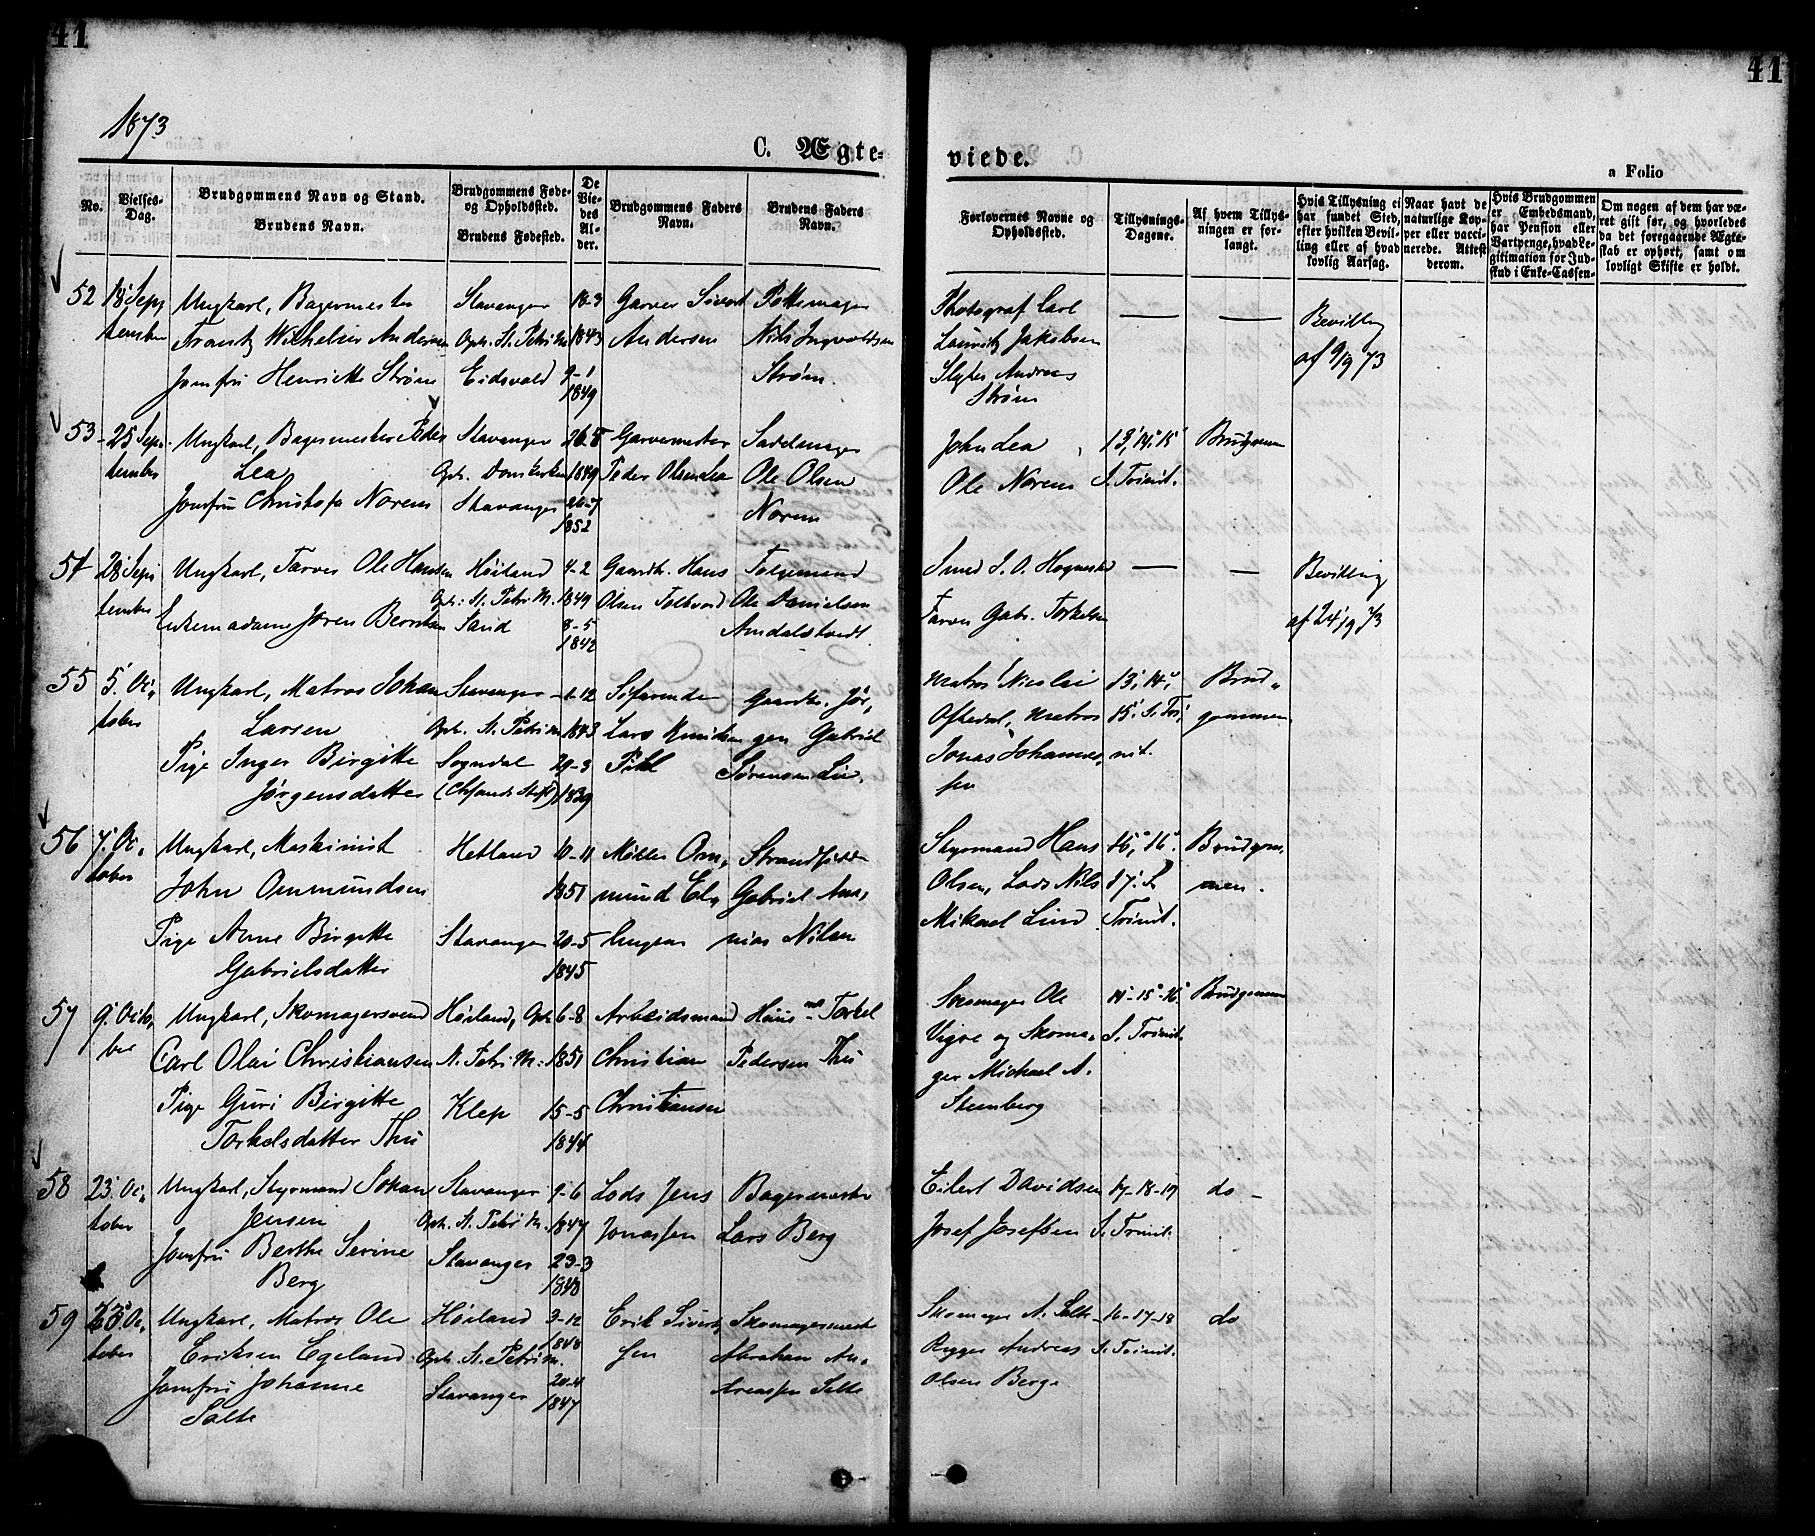 41
41
1873
C. Ægteviede.
a Folio
No.
Vielses-Dag.
Brudgommens Navn og Stand.
Brudens Navn.
Brudgommens Føde- og Opholdssted.
Brudens Fødested.
De Viedes Alder.
Brudgommens Faders Navn.
Brudens Faders Navn.
Forlovernes Navne og Opholdssted.
Tillysnings-Dagene.
Af hvem Tillysningen er forlangt.
Hvis Tillysning ei har fundet Sted, efter hvilken Bevilling eller af hvad lovlig Aarsag.
Naar havt de naturlige Kopper eller vaccinerede. Attest derom.
Hvis Brudgommen er Embedsmand, har Pension eller Vartpenge, hvad Legitimation for Indskud i Enke-Cassen.
Om nogen af dem har været gift før, og hvorledes da det foregaaende Ægteskab er ophørt, samt om lovligt Skifte er holdt.
52
18 September
Ungkarl, Bagermester
Frantz Wilhelm Andersen
Jomfru Henriette Strøm
Stavanger
Oph. St. Petri M.
Eidsvold
18-3
1843
9-1
1849
Garver Sivert
Andersen
Pottemager
Nils Ingvoldsen
Strøm.
Photograf Carl
Lauritz Jakobsen
Andreas
Strøm
—
—
Bevilling
af 9/9 73
53
25 September
Ungkarl, Bagermester Peder
Lea
Jomfru Christofa Norem
Stavanger
Oph. Domkirken
Stavanger
26-8
1849
20-7
1852
Garvermester
Peder Olsen Lea
Sadelmager
Ole Olsen
Norem
John Lea
Ole Norem
13, 14, 15
S. Trinit.
Brudgommen
54
28 September
Ungkarl, Farver Ole Hansen
Enkemadame Jøren Berntsen
Høiland
Oph. St. Petri M.
Sand
4-2
1849
8-5
1842
Gaardbr. Hans
Olsen
Ole Danielsen
Smed
Farver Gabr. Torkelsen
—
—
Bevilling
af 24/9 73
55
5. October
Ungkarl, Matros Johan
Larsen
Pige Inger Birgitte
Jørgensdatter
Stavanger
Oph. St. Petri M.
Sogndal
(Chrsands Stift)
1-12
1843
29-3
1839
Søfarende
Lars Knudsen
Pihl
Gaardbr. Jørgen Gabriel
Sørensen
Matros Nicolai
Oftedal, Matros
Jonas Johannessen
13, 14,
15. S. Trinit.
Brudgommen
56
7. October
Ungkarl, Maskinist
John Ommundsen
Pige Anne Birgitte
Gabrielsdatter
Hetland
Stavanger
10-11
1851
20-5
1845
Møller Ommund
Strandsidder
Gabriel Ananias Nilsen
Styrmand Hans
Olsen, Lods Nils
Mikael Lind
15, 16,
17. S.
Trinit.
Brudgommen.
57
9. October
Ungkarl, Skomagersvend
Carl Olai Christiansen
Pige Guri Birgitte
Torkelsdatter Thu
Høiland, Oph.
St. Petri M.
Klep
6-8
1851
15-5
1844
Arbeidsmand
Christian
Christiansen
Huusmd Torkel
Pedersen Thu
Skomager Ole
Vigre og Skomager Michael A.
Steenberg
14-15-16.
S. Trinit.
Brudgommen
58
23. October
Ungkarl, Styrmand Johan
Jensen
Jomfru Berthe Serine
Berg
Stavanger
Oph. St. Petri M.
Stavanger
9-6
1847
23-3
1848
Lods Jens
Jonassen
Bagermester
Lars Berg
Eilert Davidsen
Josef Josefsen
17-18-19
S. Trinit.
do
59
October
Ungkarl, Matros Ole
Eriksen Egeland
Jomfru Johanne
Salte
Høiland
Oph. St. Petri M.
Stavanger
3-12
1848
20-4
1847
Erik Sivertsen
Skomagermester
Abraham Andreassen Salte
Skomager A. Salte
Rygger Andreas
Olsen Berge
16-17-18
S. Trinit.
do